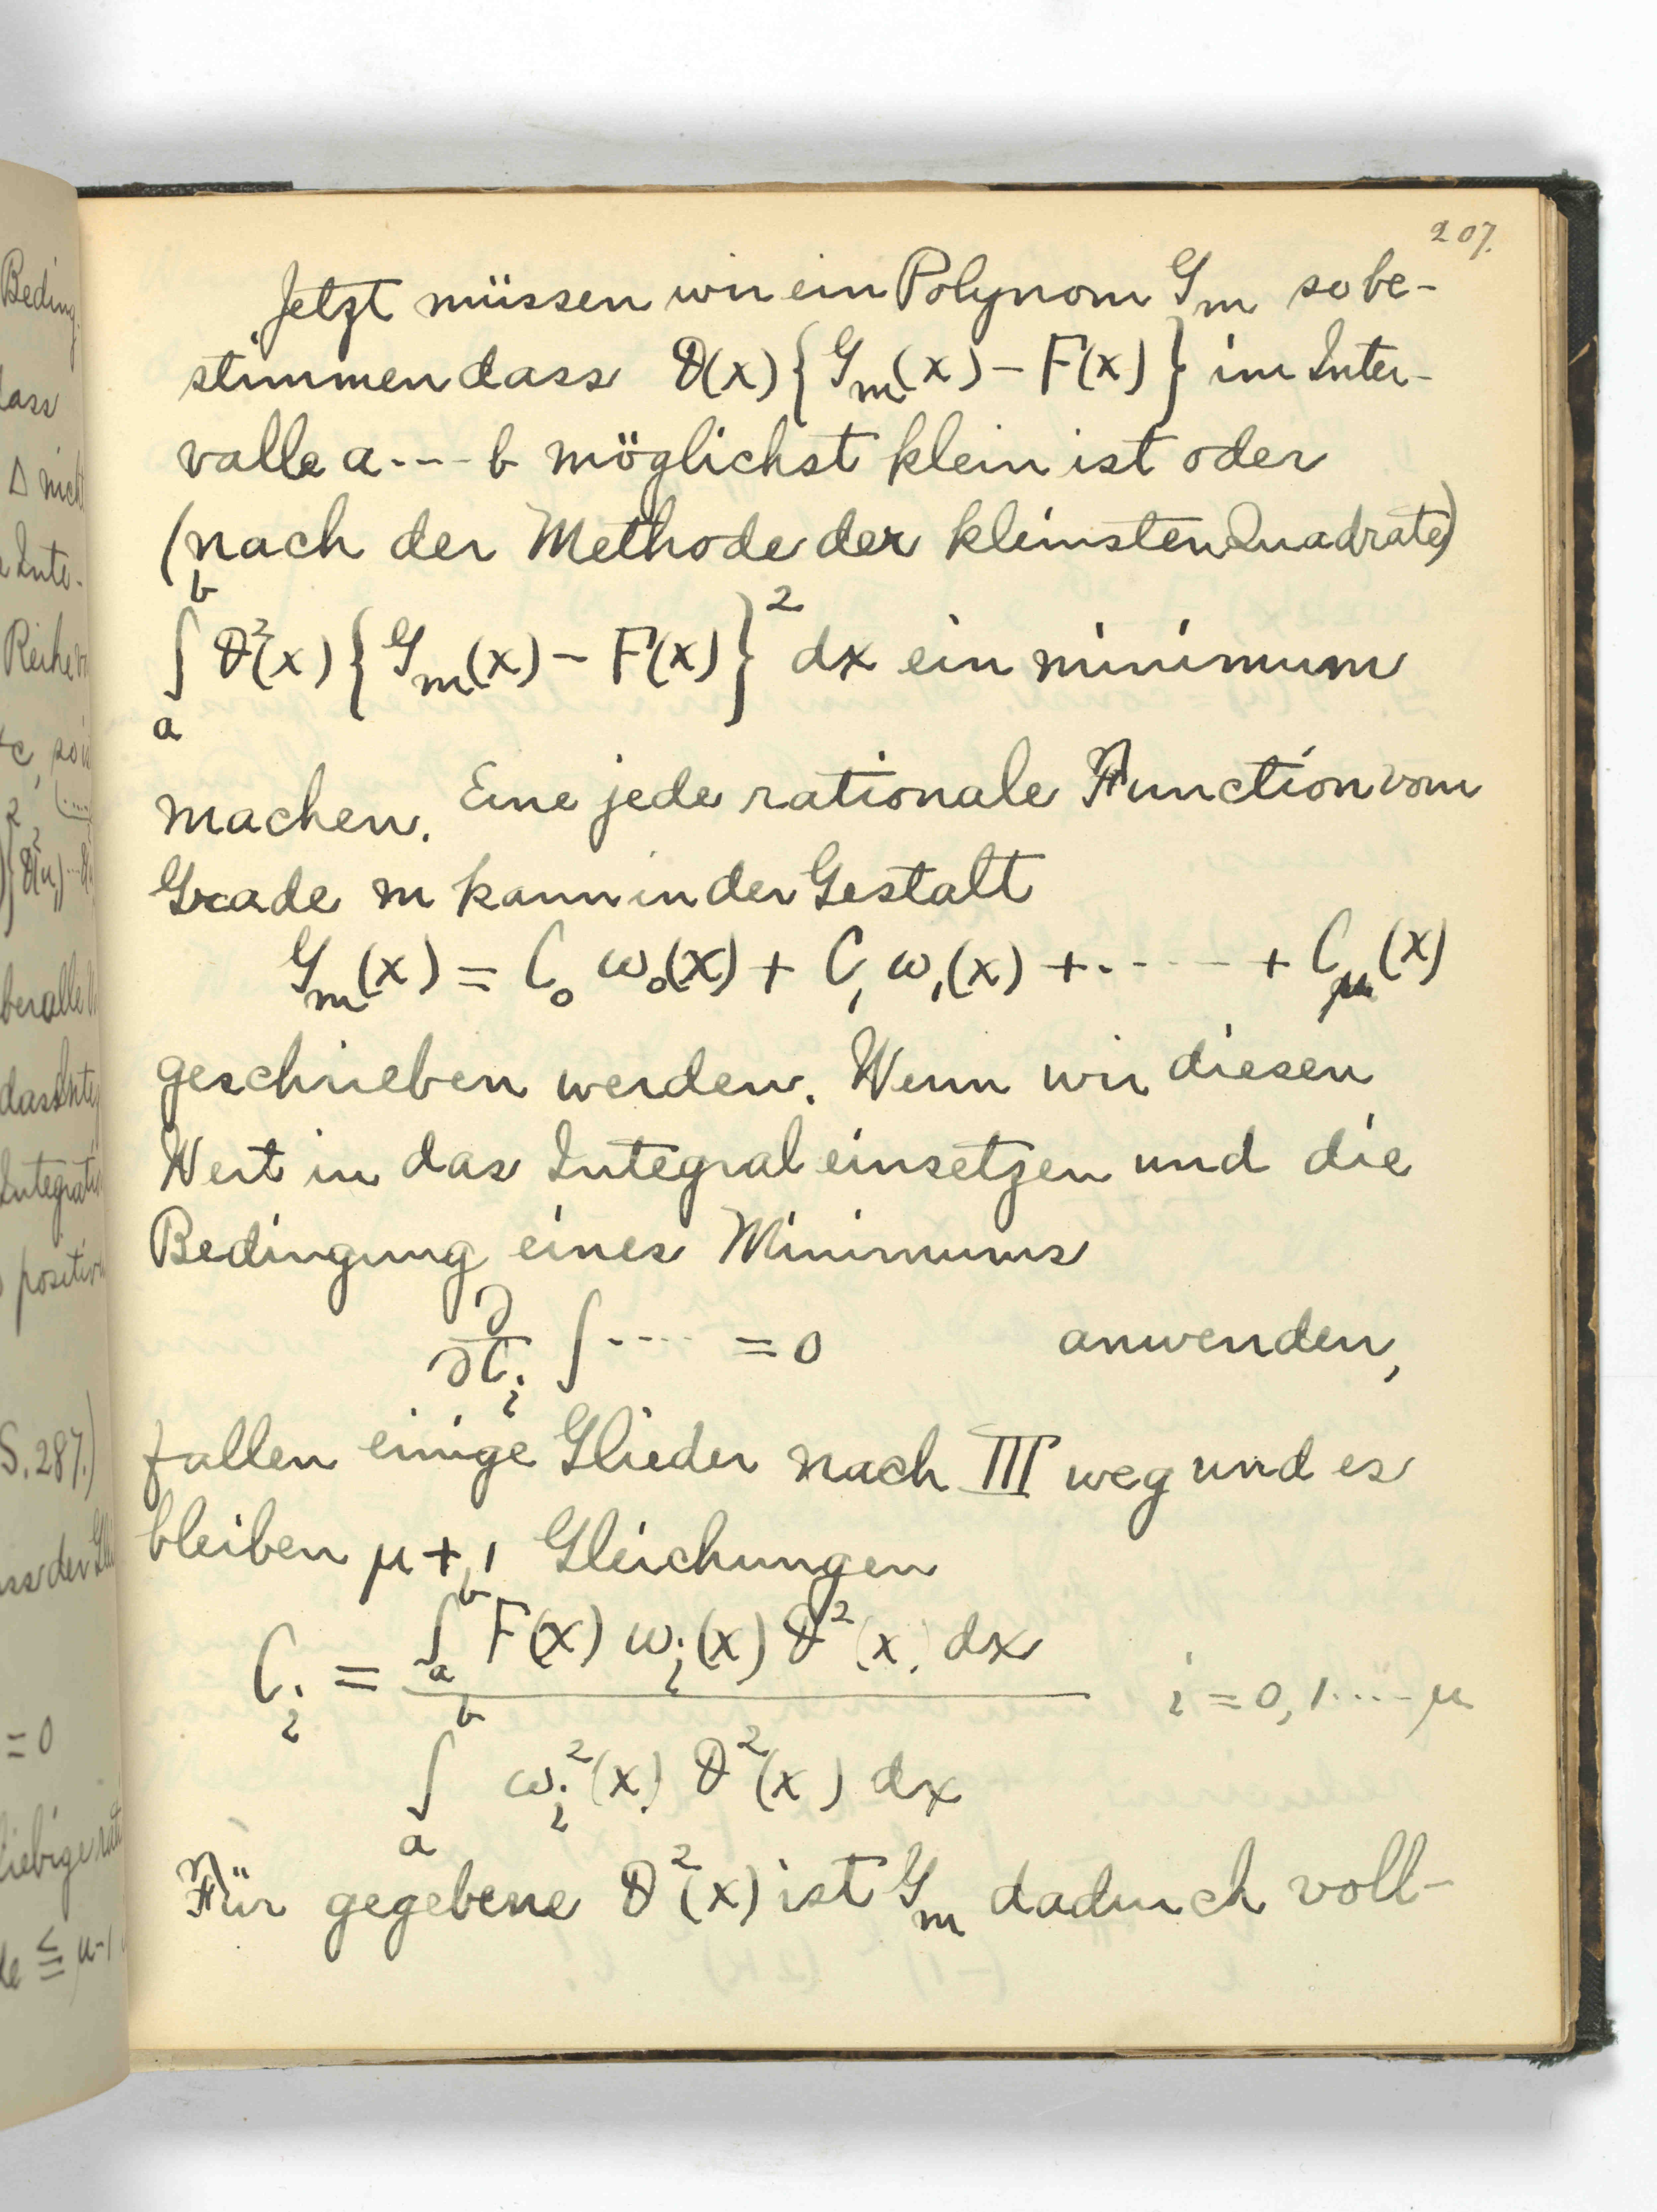 207.
Jetzt müssen wir ein Polynom G_m so be-
stimmen dass ϑ(x) { G_m(x) − F(x) } im Inter-
valle a ---- b möglichst klein ist oder
(nach der Methode der kleinsten Quadrate)
∫_a^b ϑ²(x) { G_m(x) − F(x) }² dx ein minimum
machen. Eine jede rationale Function vom
Grade m kann in der Gestalt
G_m(x) = C_0 ω_0(x) + C_1 ω_1(x) + ····· + C_μ(x)
geschrieben werden. Wenn wir diesen
Wert in das Integral einsetzen und die
Bedingung eines Minimums
∂/∂C_i ∫ ---- = 0 anwenden,
fallen einige Glieder nach III weg und es
bleiben μ + 1 Gleichungen
C_i = ∫_a^b F(x) ω_i(x) ϑ²(x) dx / ∫_a^b ω_i²(x) ϑ²(x) dx i = 0, 1 ···· μ
Für gegebene ϑ²(x) ist G_m dadurch voll-
Beding.
dass
Δ nicht
Inte-
Reihe
S. 287.)
= 0
≦ μ-1